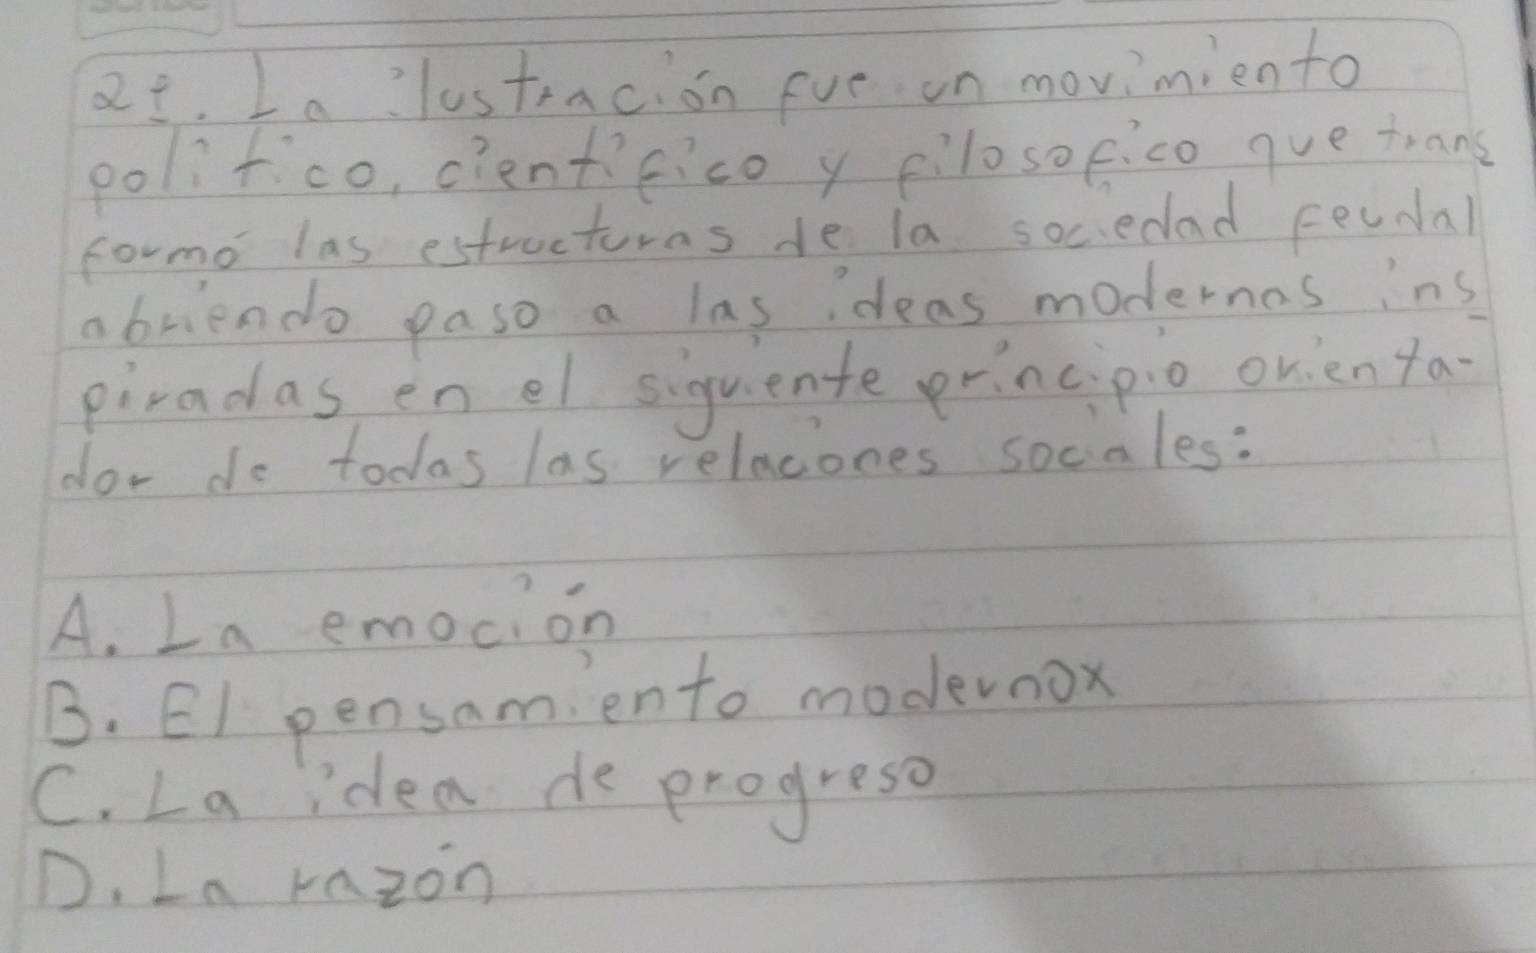 2º. La ilustración fue un movimiento
político, científico y filosofico que trans
formó las estructuras de la sociedad feudal
abriendo paso a las ideas modernas ins
piradas en el siguiente principio orienta-
dor de todas las relacones sociales:
A. La emoción
B. El pensamiento modernox
C. La idea de progreso
D. La razón